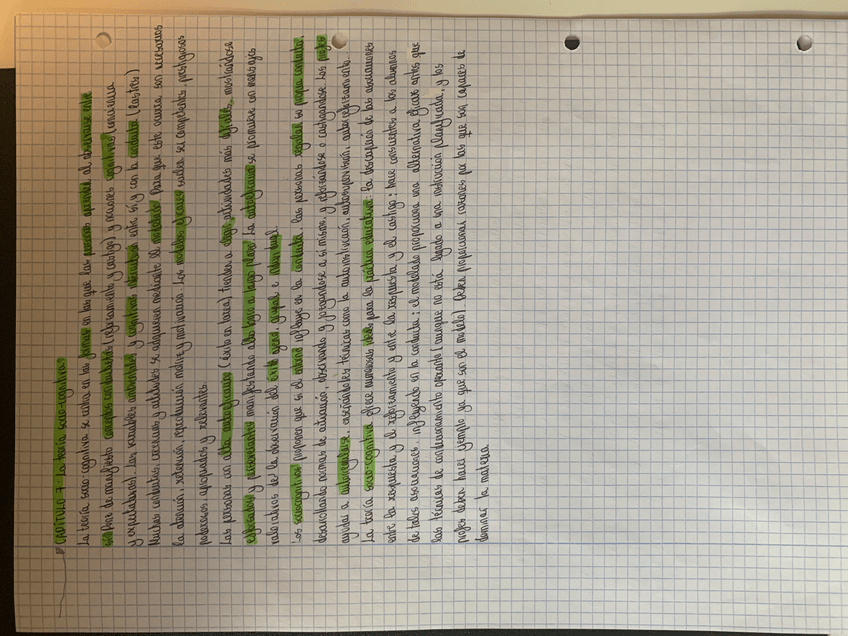 CAPÍTULO 7: La teoría socio-cognitiva
La teoría socio-cognitiva se centra en las formas en las que las personas aprenden al observarse entre
sí. Pone de manifiesto conceptos conductistas (reforzamiento y castigo) y nociones cognitivas (conciencia
y expectativas). Las variables ambientales y cognitivas interactúan entre sí y con la conducta (Rastres)
Muchas conductas, creencias y actitudes se adquieren mediante el modelado. Para que este ocurra son necesarios
la atención, retención, reproducción motriz y motivación. Los modelos eficaces suelen ser competentes, prestigiosos
poderosos, apropiados y relevantes.
Las personas con alta autoeficacia (éxito en tarea) tienden a elegir actividades más difíciles, mostrándose
esforzados y perseverantes manifestando alto logro a largo plazo. La autoeficacia se promueve con mensajes
valorativos de la observación del éxito ajeno, grupal e individual.
Los sociocognitivos proponen que si el entorno influye en la conducta, las personas regulan su propia conducta,
desarrollando normas de actuación, observando y juzgándose a sí mismos, y reforzándose o castigándose. Los profes
ayudan a autorregularse, enseñándoles técnicas como la autoinstrucción, autosupervisión, autoreforzamiento.
La teoría socio-cognitiva ofrece numerosas ideas para la práctica educativa: la descripción de las asociaciones
entre la respuesta y el reforzamiento y entre la respuesta y el castigo; hace conscientes a los alumnos
de tales asociaciones, influyendo en la conducta; el modelado proporciona una alternativa eficaz antes que
las técnicas de condicionamiento operante (aunque no está ligado a una instrucción planificada), y los
profes deben hacer ejemplo ya que son el modelo) deben proporcionar razones por las que son capaces de
dominar la materia.